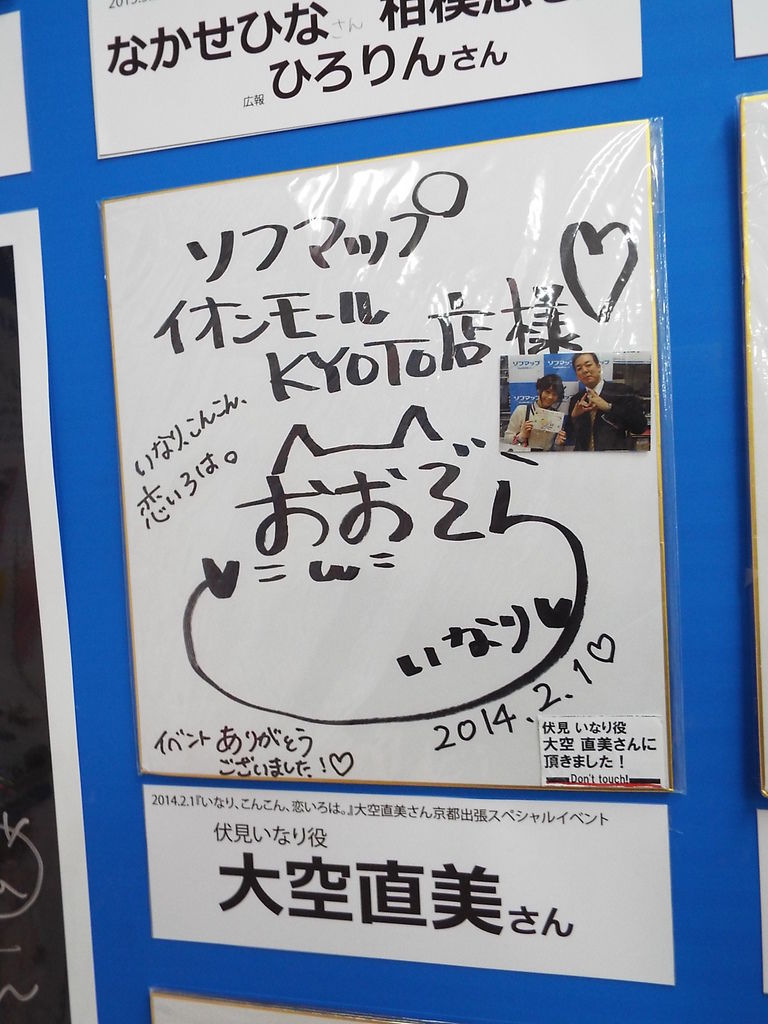 なかせひなさん
広報 ひろりんさん
ソフマップ
イオンモール
KYOTO店様
いなり、こんこん、
恋いろは。
おおぞら
いなり
2014.2.1
イベントありがとう
ございました!
ソフマップ ソフマップ
ソフマップ
伏見 いなり役
大空 直美さんに
頂きました!
Don't touch!
2014.2.1『いなり、こんこん、恋いろは。』大空直美さん京都出張スペシャルイベント
伏見いなり役
大空直美さん